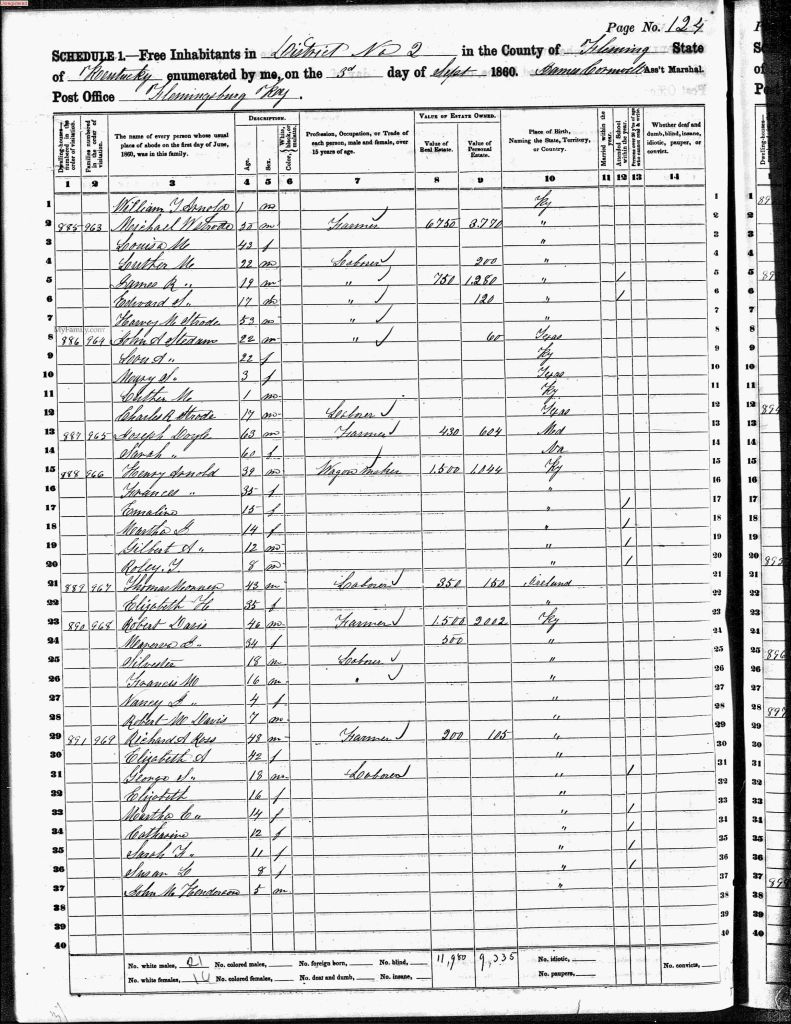 Page No. 124
SCHEDULE 1.—Free Inhabitants in District No 2 in the County of Fleming State
of Kentucky enumerated by me, on the 3d day of Sept 1860. James Ass't Marshal.
Post Office Flemingsburg Ky.
DESCRIPTION. VALUE OF ESTATE OWNED.
Dwelling-houses—numbered in the order of visitation. Families numbered in the order of visitation. The name of every person whose usual place of abode on the first day of June, 1860, was in this family. Age. Sex. Color, White, black, or mulatto. Profession, Occupation, or Trade of each person, male and female, over 15 years of age. Value of Real Estate. Value of Personal Estate. Place of Birth, Naming the State, Territory, or Country. Married within the year. Attended School within the year. Persons over 20 years of age who cannot read & write. Whether deaf and dumb, blind, insane, idiotic, pauper, or convict.
1 2 3 4 5 6 7 8 9 10 11 12 13 14
1 William T Arnold 1 m Ky 1
2 885 963 Michael W Strode m Farmer 6750 3.770 " 2
3 Louisa M 42 f " 3
4 Luther M 22 m Laborer 200 " 4
5 James R " 19 m " 750 1.280 " 1 5
6 Edward S " 17 m " 120 " 1 6
7 Harvey M Strode 53 m " " 7
MyFamily.com
8 886 964 John A Stedam 22 m " 60 Texas 8
9 " 22 f Ky 9
10 " 3 f Texas 10
11 Luther M 1 m Ky 11
12 Charles R Strode 17 m Laborer Texas 12
13 887 965 Joseph Doyle 63 m Farmer 430 604 Md 13
14 Sarah " 60 f 14
15 888 966 Henry Arnold 39 m Wagon maker 1.500 1.044 Ky 15
16 Frances " 35 f " 16
17 Emaline 15 f " 1 17
18 Martha J 14 f " 1 18
19 Gilbert A " 12 m " 1 19
20 Roley T 8 m " 1 20
21 889 967 Thomas 43 m Laborer 350 150 Ireland 21
22 Elizabeth 35 f " 22
23 890 968 Robert Davis 46 m Farmer 1.500 2002 Ky 23
24 " 34 f 500 " 24
25 Silvester 18 m Laborer " 25
26 Francis M 16 m " " 26
27 Nancy J " 4 f " 27
28 Robert W Davis 7 m " 28
29 891 969 Richard A Ross 48 m Farmer 200 105 " 29
30 Elizabeth A 42 f " 30
31 George S " 18 m Laborer " 1 31
32 Elizabeth 16 f " 32
33 Martha C " 14 f " 1 33
34 Catharine 12 f " 1 34
35 Sarah F " 11 f " 1 35
36 Susan L 8 f " 1 36
37 John M Henderson 5 m " 37
38 38
39 39
40 40
No. white males, 21 No. colored males, No. foreign born, No. blind, 11,980 9,335 No. idiotic, No. convicts,
No. white females, 16 No. colored females, No. deaf and dumb, No. insane, No. paupers,